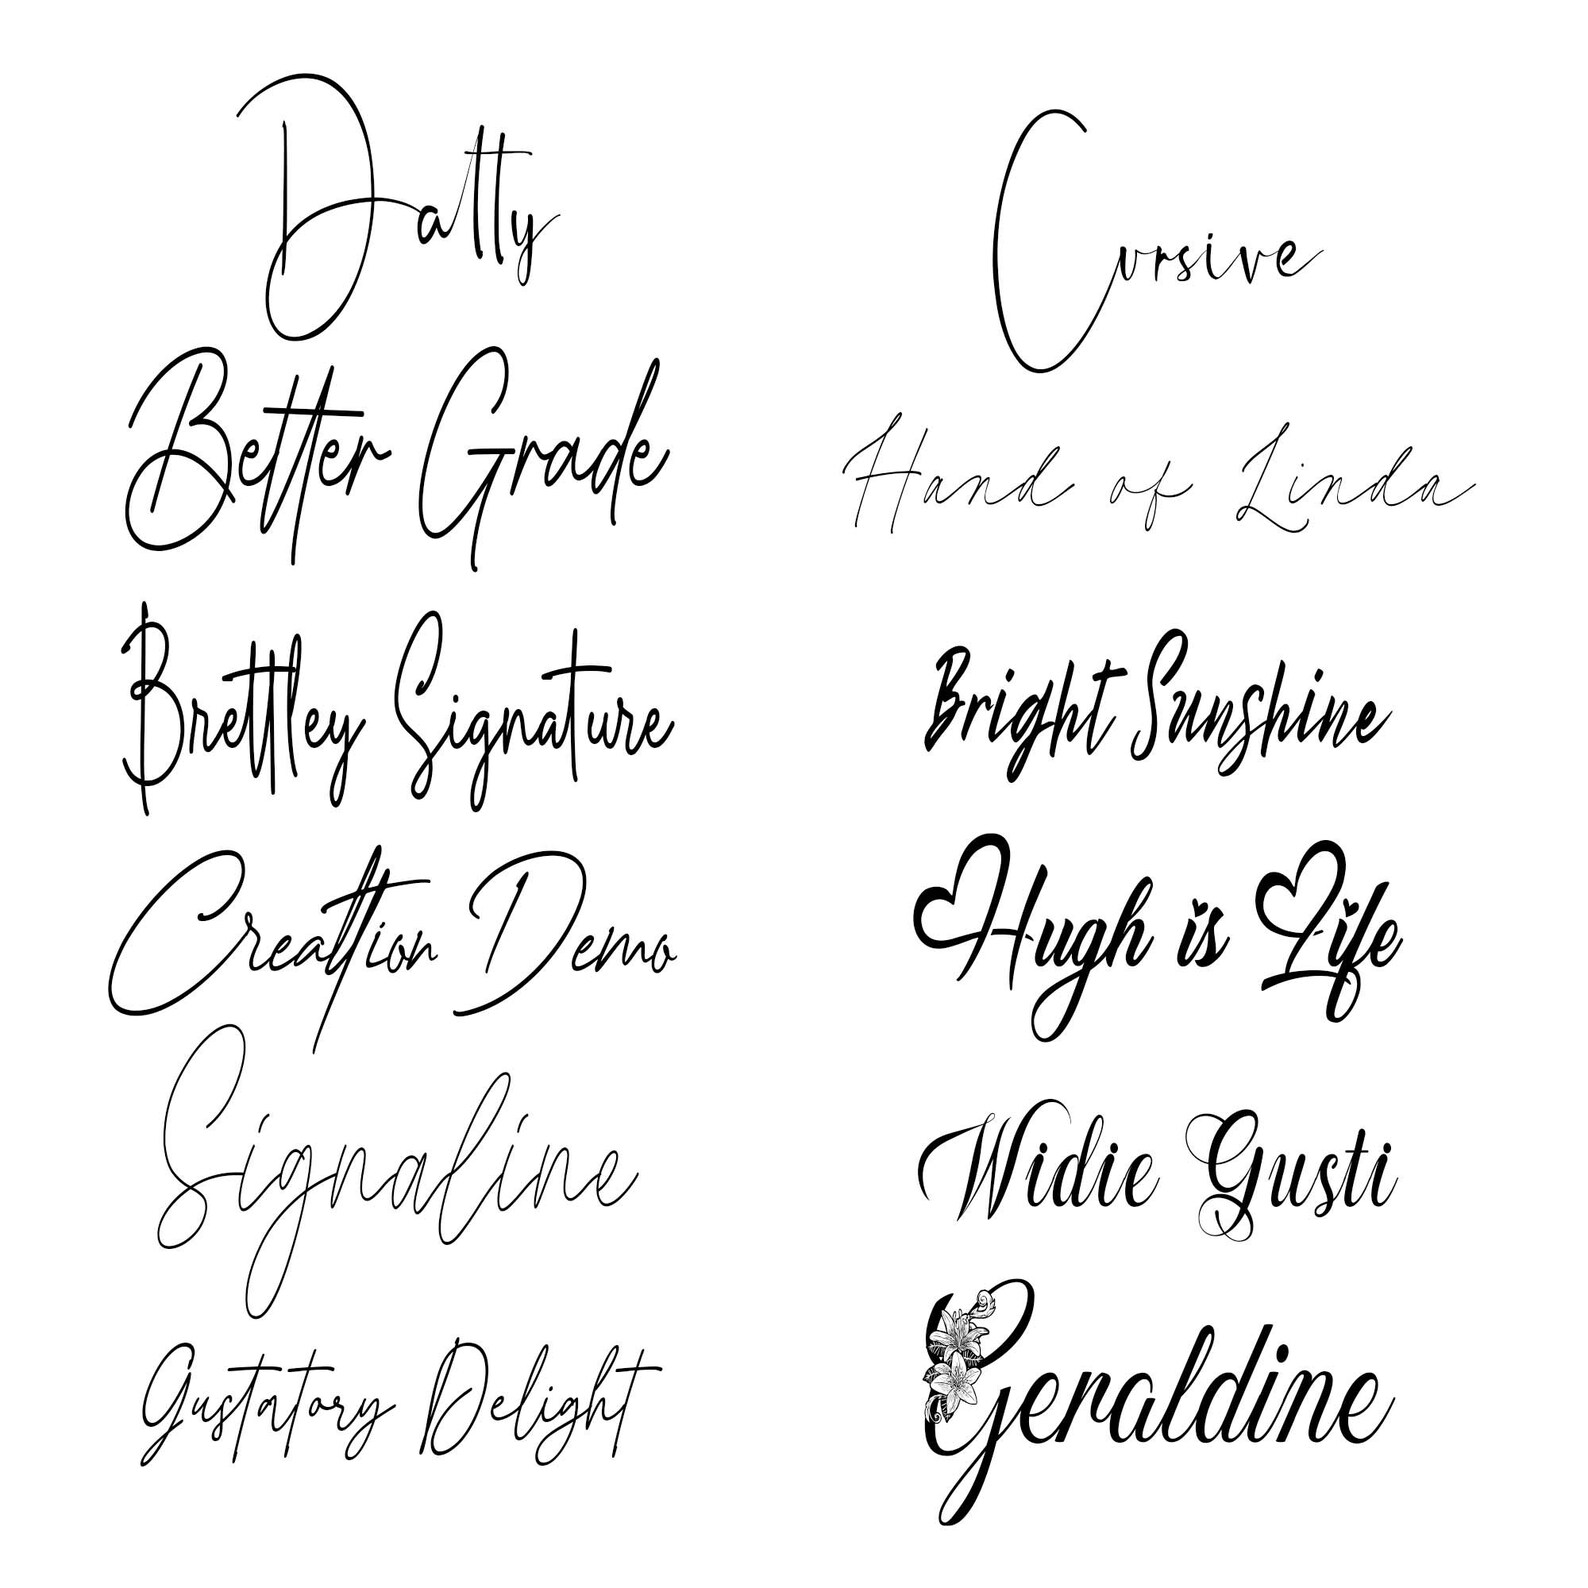 Datty
Better Grade
Brettley Signature
Creattion Demo
Signaline
Gustatory Delight
Cursive
Hand of Linda
Bright Sunshine
Hugh is Life
Widie Gusti
Geraldine